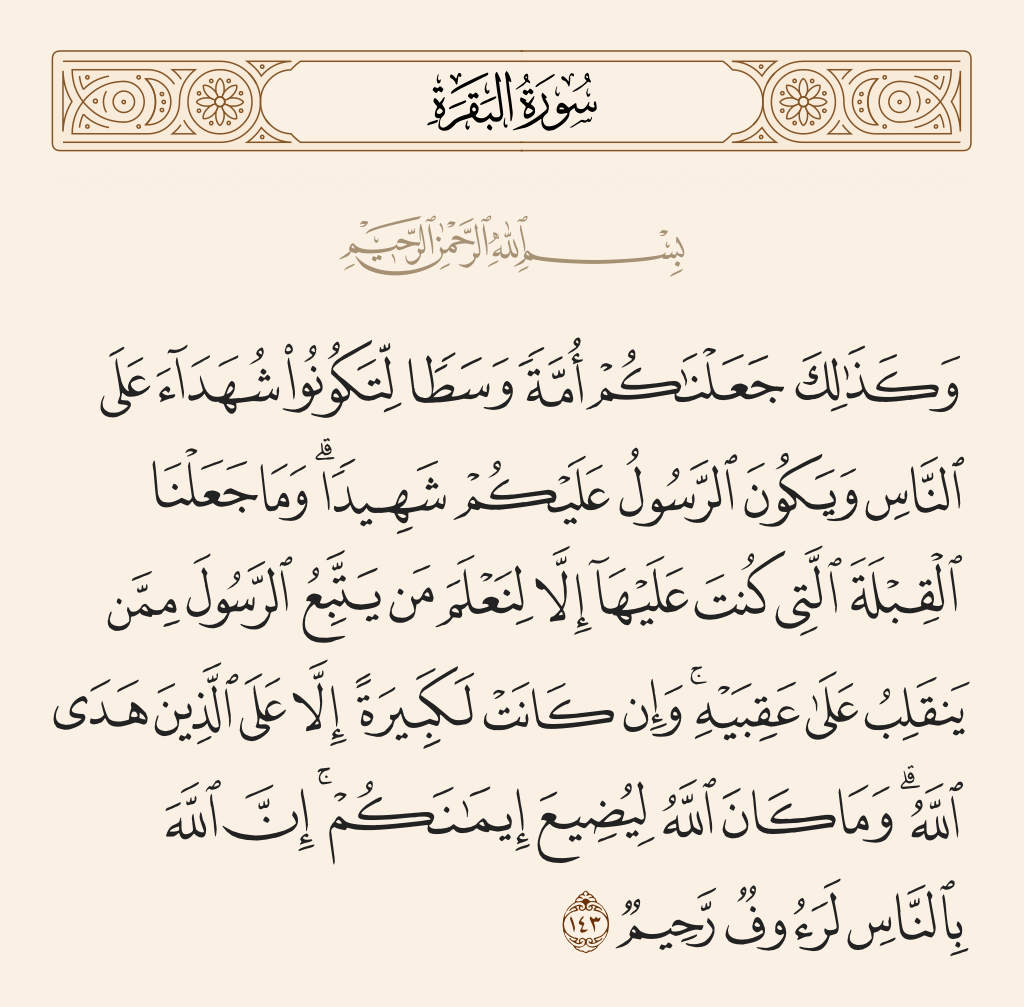 سُورَةُ البَقَرَةِ
بِسْمِ ٱللَّهِ ٱلرَّحْمَٰنِ ٱلرَّحِيمِ
وَكَذَٰلِكَ جَعَلْنَٰكُمْ أُمَّةً وَسَطًا لِّتَكُونُوا۟ شُهَدَآءَ عَلَى
ٱلنَّاسِ وَيَكُونَ ٱلرَّسُولُ عَلَيْكُمْ شَهِيدًا ۗ وَمَا جَعَلْنَا
ٱلْقِبْلَةَ ٱلَّتِى كُنتَ عَلَيْهَآ إِلَّا لِنَعْلَمَ مَن يَتَّبِعُ ٱلرَّسُولَ مِمَّن
يَنقَلِبُ عَلَىٰ عَقِبَيْهِ ۚ وَإِن كَانَتْ لَكَبِيرَةً إِلَّا عَلَى ٱلَّذِينَ هَدَى
ٱللَّهُ ۗ وَمَا كَانَ ٱللَّهُ لِيُضِيعَ إِيمَٰنَكُمْ ۚ إِنَّ ٱللَّهَ
بِٱلنَّاسِ لَرَءُوفٌ رَّحِيمٌ ١٤٣